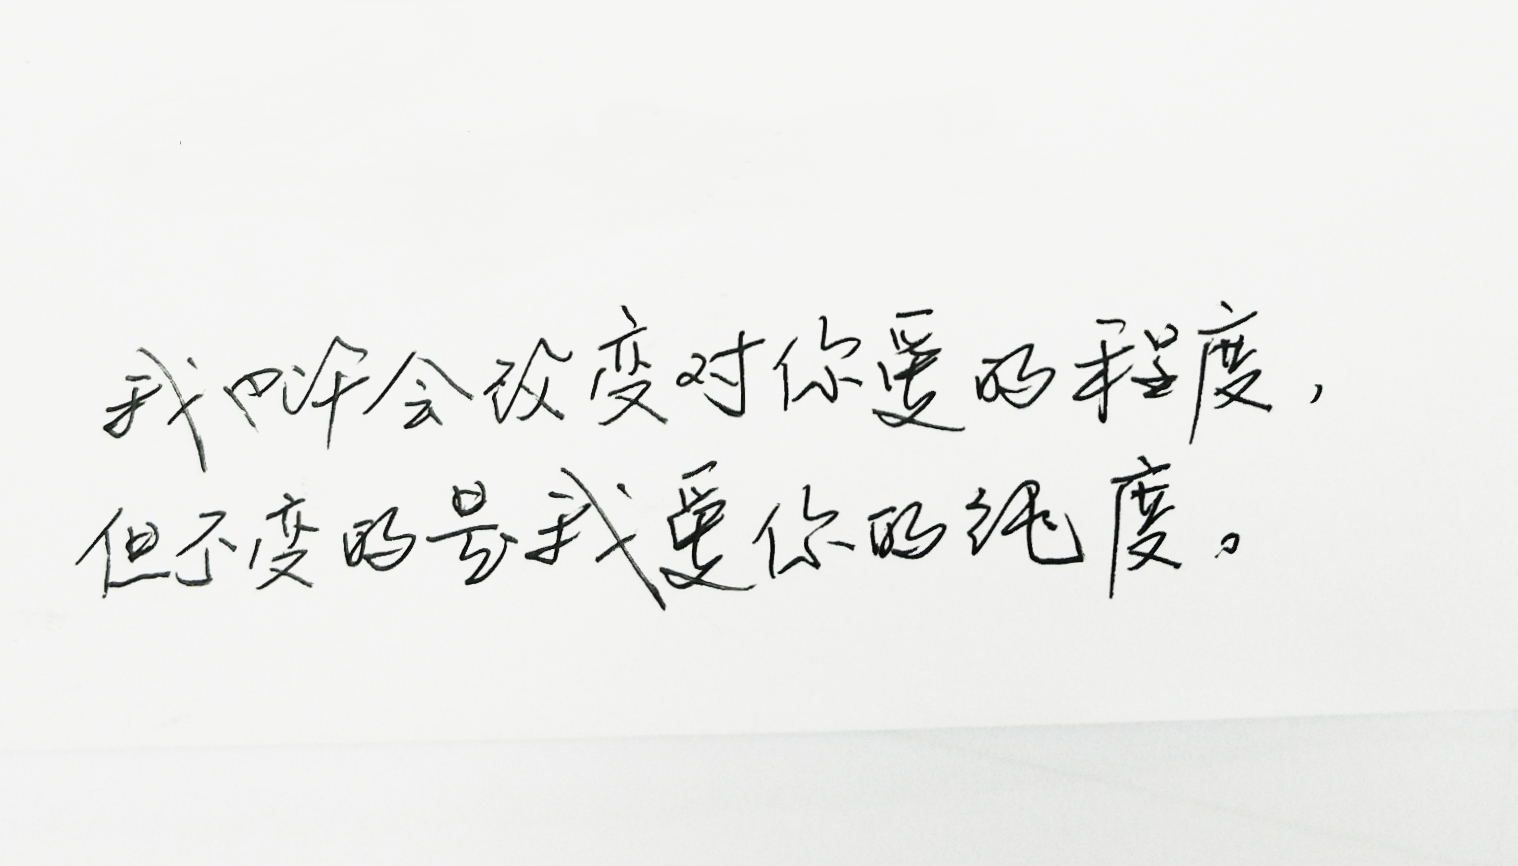 我也许会改变对你爱的程度，
但不变的是我爱你的纯度。